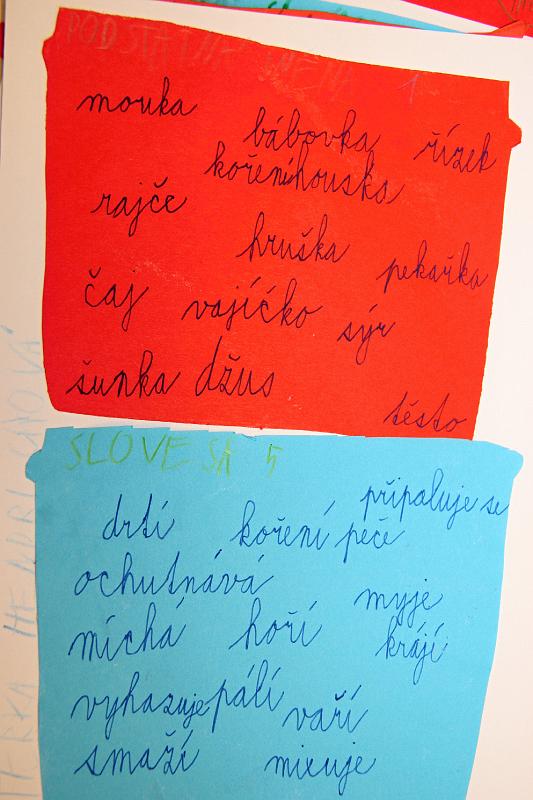 PODSTATNÁ JMÉNA 1
mouka
bábovka řízek
koření houska
rajče
hruška
pekařka
čaj vajíčko sýr
šunka džus
těsto
SLOVESA 5
připaluje se
drtí koření peče
ochutnává
myje
míchá hoří krájí
vyhazuje pálí vaří
smaží mixuje